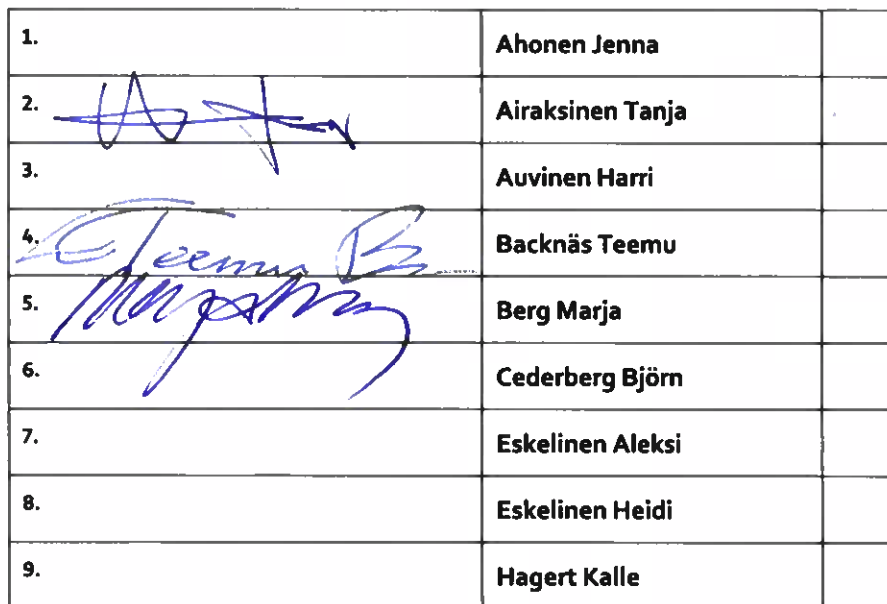 1. Ahonen Jenna
2. Airaksinen Tanja
3. Auvinen Harri
4. Teemu B Backnäs Teemu
5. Berg Marja
6. Cederberg Björn
7. Eskelinen Aleksi
8. Eskelinen Heidi
9. Hagert Kalle